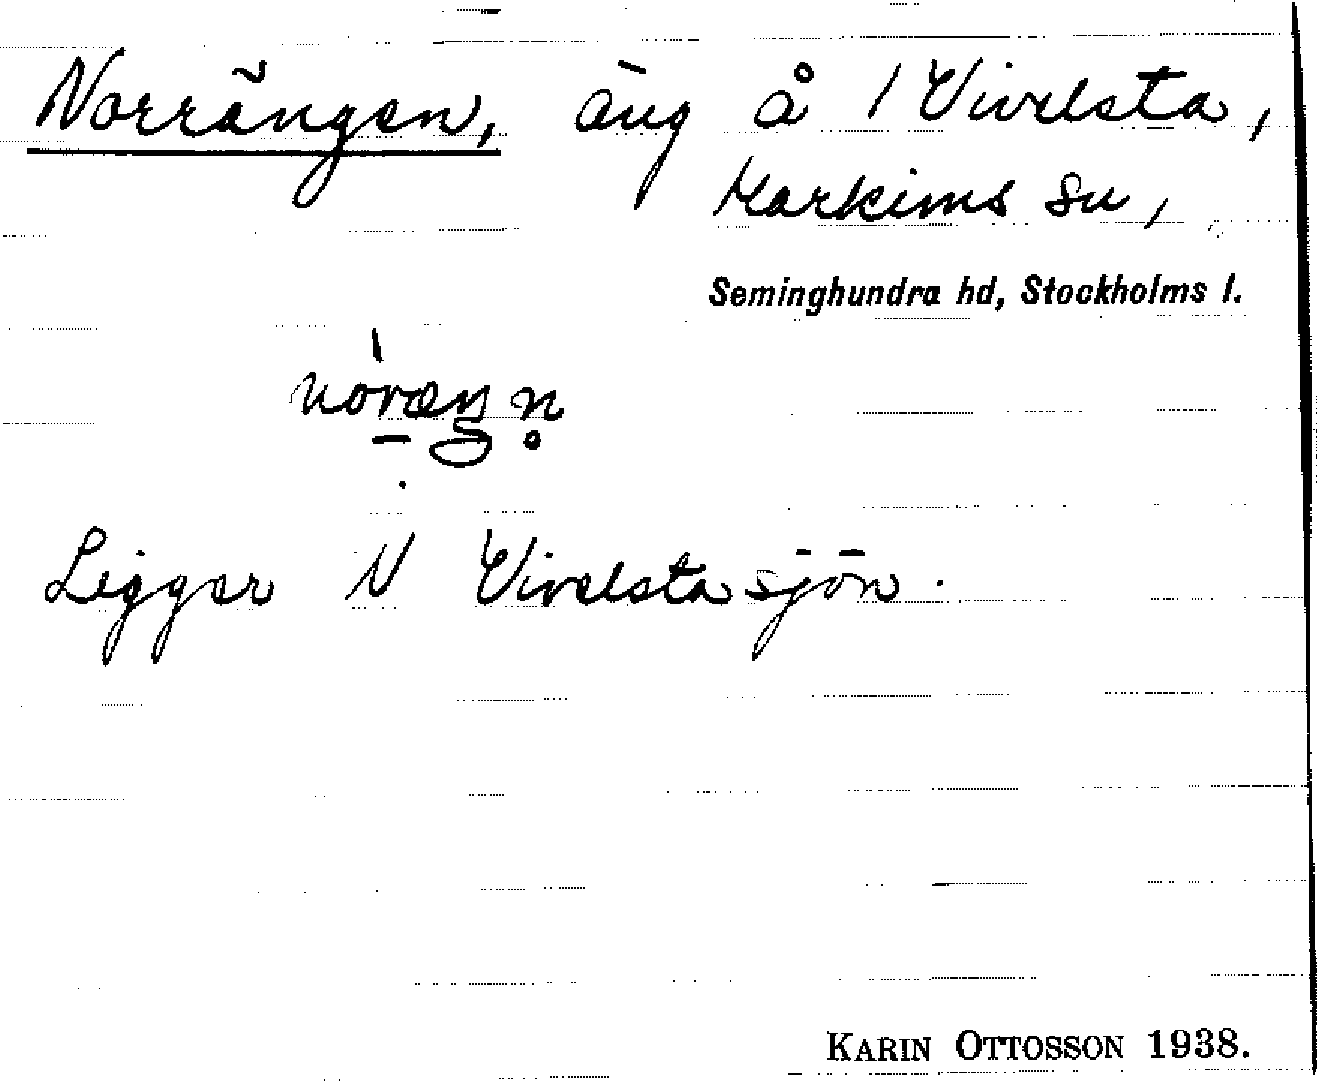 Norrängen, äng å 1 Vivelsta,
Markims sn,
Seminghundra hd, Stockholms l.
Ligger N Vivelstasjön.
KARIN OTTOSSON 1938.